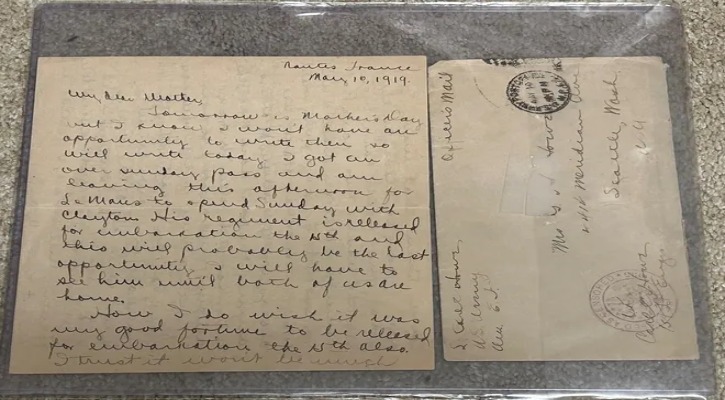 Nantes France
May, 10, 1919.
My Dear Mother,
Tomorrow is Mother's Day
but I know I wont have an
opportunity to write then so
will write today. I got an
over sunday pass and am
leaving this afternoon for
Le Mans to spend Sunday with
Clayton. His regiment is released
for embarkation the 15th and
this will probably be the last
opportunity I will have to
see him until both of us are
home.
How I do wish it was
my good fortune to be released
for embarkation the 15th also.
I trust it won't be much
Officers Mail
Mrs
Meridian Ave
Seattle, Wash.
U.S. Army